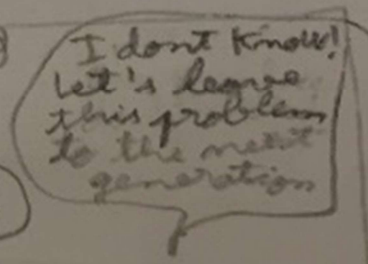 I dont know!
Let's leave
this problem
to the next
generation